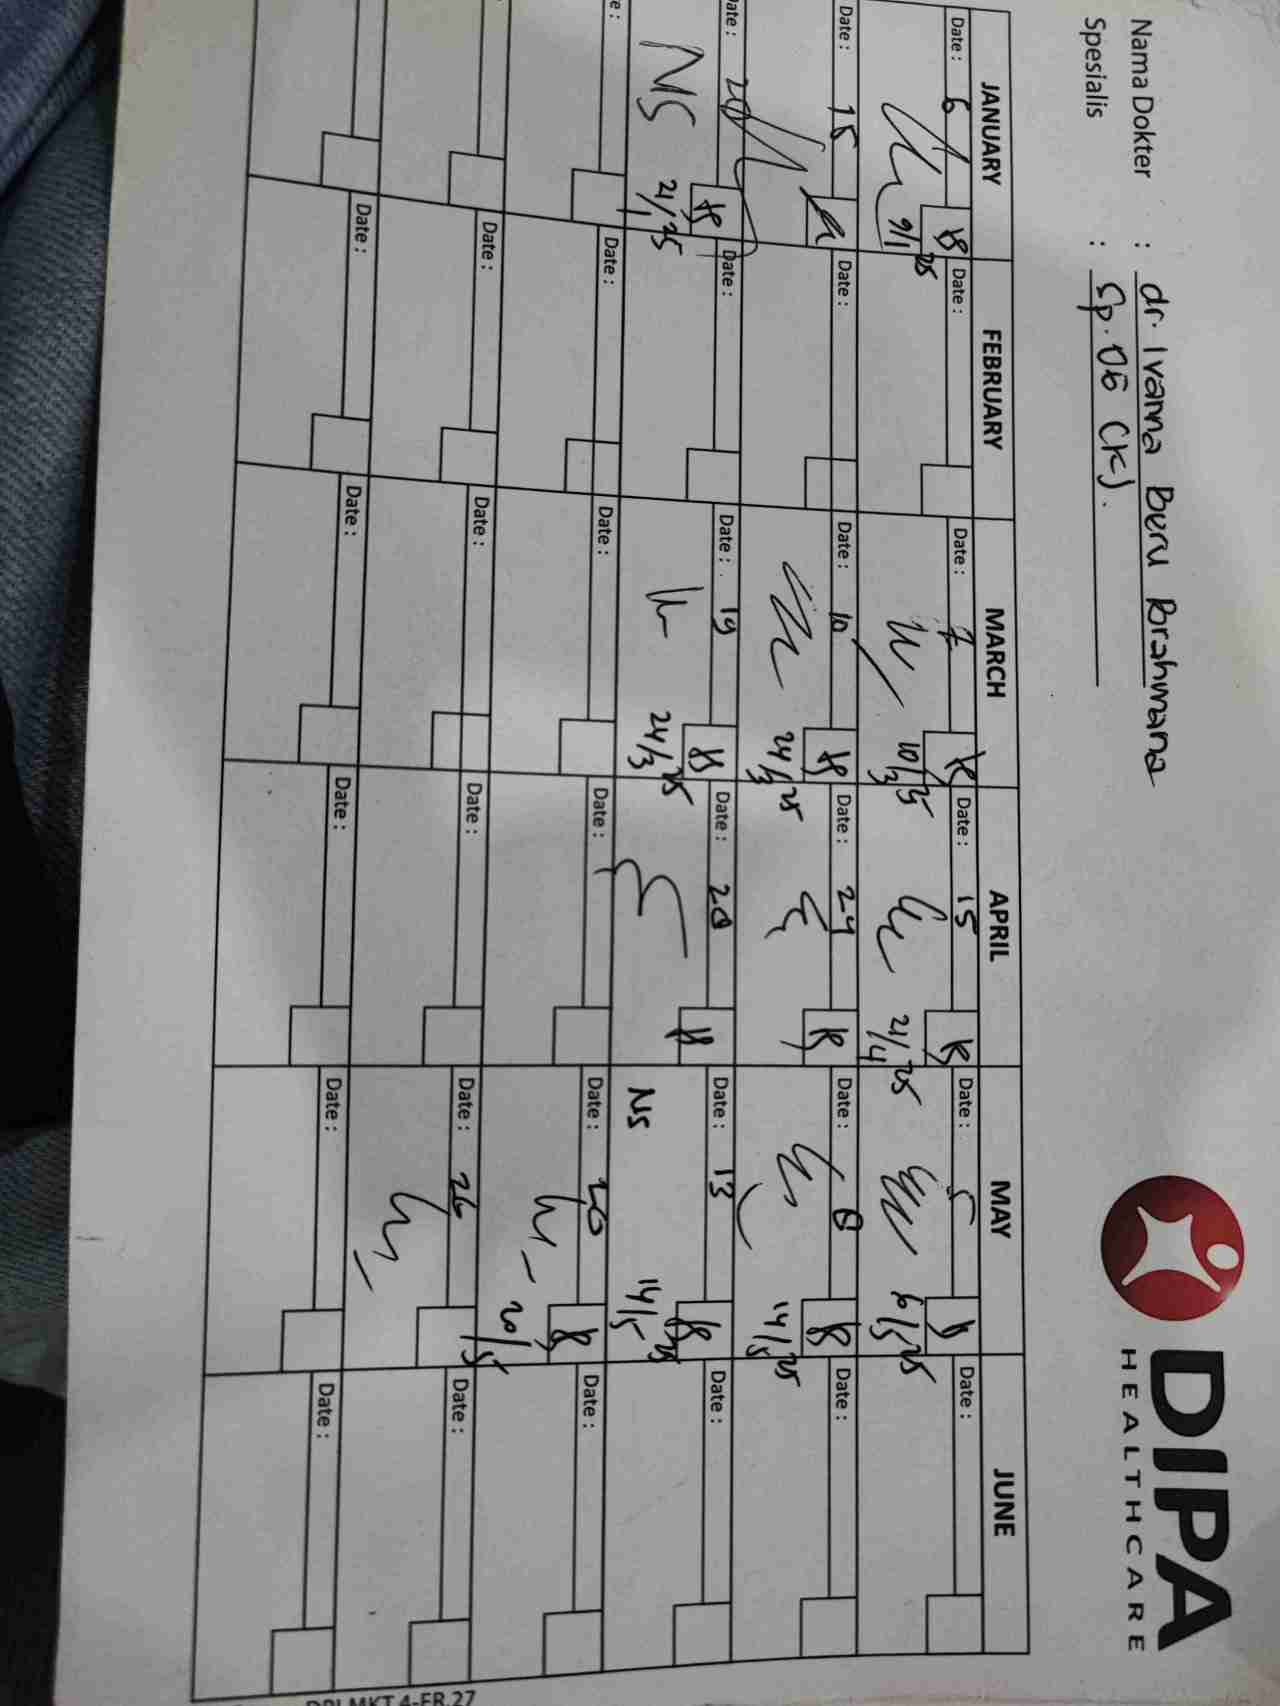 Nama Dokter : dr. Ivanna Beru Brahmana
Spesialis : Sp. OG (K).
DIPA
HEALTHCARE
JANUARY FEBRUARY MARCH APRIL MAY JUNE
Date : 6 Date : Date : 7 Date : 15 Date : 5 Date :
9/1 25 10/3 25 21/4 25 6/5 25
Date : 15 Date : Date : 10 Date : 24 Date : 8 Date :
24/3 25 14/5 25
Date : 20 Date : Date : 19 Date : 28 Date : 13 Date :
NS 21/1 25 24/3 25 NS 14/5 25
e : Date : Date : Date : Date : 20 Date :
20/5
Date : Date : Date : Date : 26 Date :
Date : Date : Date : Date : Date :
DPI.MKT.4-FR.27